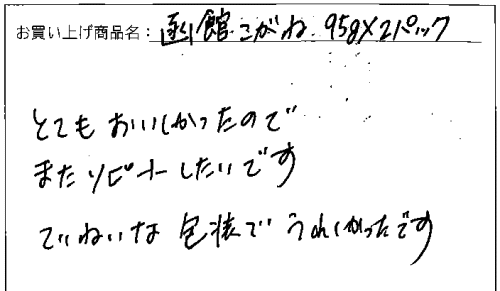 お買い上げ商品名：函館こがね 95g×2パック
とてもおいしかったので
またリピートしたいです
ていねいな包装でうれしかったです